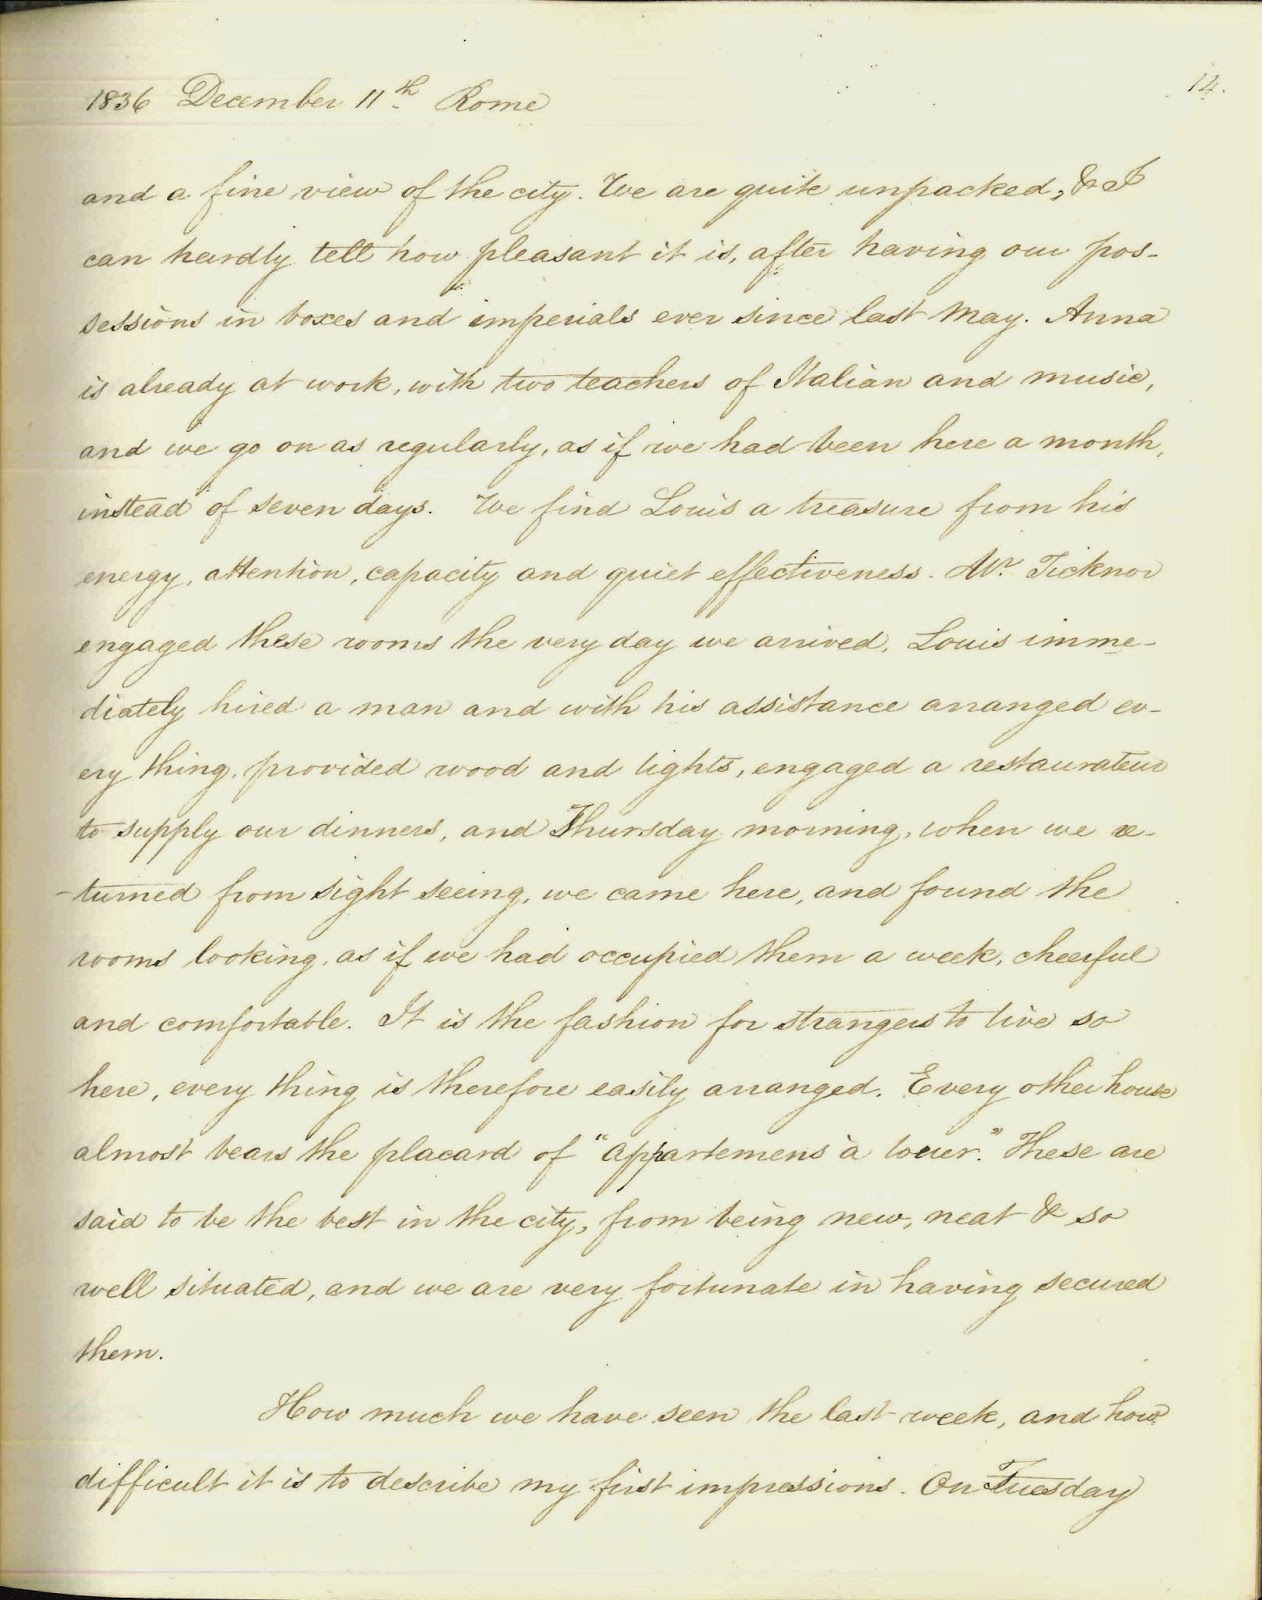 14.
1836 December 11th. Rome
and a fine view of the city. We are quite unpacked, & I
can hardly tell how pleasant it is, after having our pos-
sessions in boxes and imperials ever since last May. Anna
is already at work, with two teachers of Italian and music,
and we go on as regularly, as if we had been here a month,
instead of seven days. We find Louis a treasure from his
energy, attention, capacity and quiet effectiveness. Mr. Ticknor
engaged these rooms the very day we arrived, Louis imme-
diately hired a man and with his assistance arranged ev-
ery thing, provided wood and lights, engaged a restaurateur
to supply our dinners, and Thursday morning, when we re-
-turned from sight seeing, we came here, and found the
rooms looking, as if we had occupied them a week, cheerful
and comfortable. It is the fashion for strangers to live so
here, every thing is therefore easily arranged. Every other house
almost bears the placard of "appartemens à louer." These are
said to be the best in the city, from being new, neat & so
well situated, and we are very fortunate in having secured
them.
How much we have seen the last week, and how
difficult it is to describe my first impressions. On Tuesday